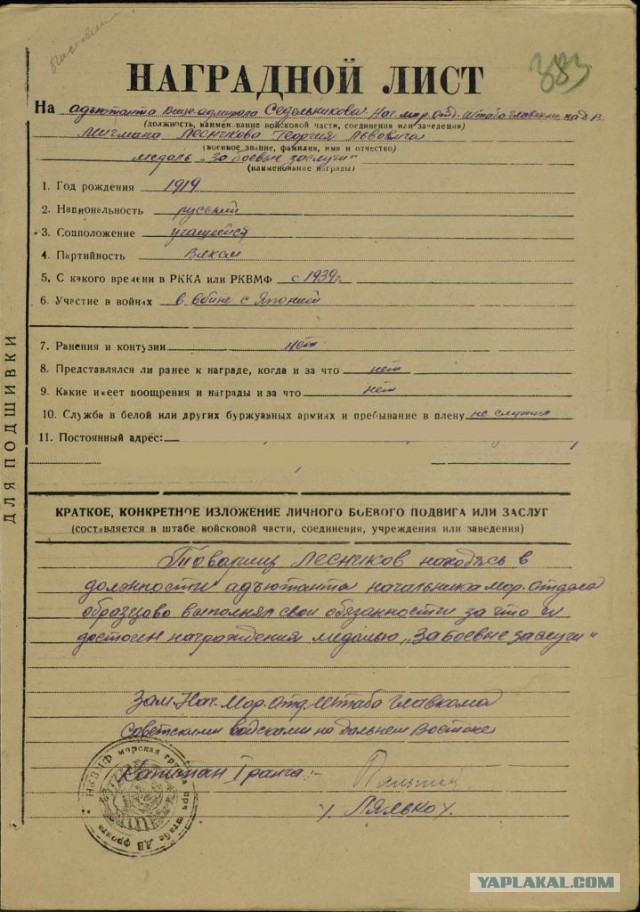 383
НАГРАДНОЙ ЛИСТ
На адъютанта вице-адмирала Седельникова Нач. мор. отд. Штаба Главком
(должность, наименование войсковой части, соединения или заведения)
Лесникова Георгия Львовича
(военное звание, фамилия, имя и отчество)
медаль „За боевые заслуги“
(наименование награды)
1. Год рождения 1919
2. Национальность русский
3. Соцположение учащийся
4. Партийность ВЛКСМ
5. С какого времени в РККА или РКВМФ с 1939г.
6. Участие в войнах в войне с Японией
7. Ранения и контузии нет
8. Представлялся ли ранее к награде, когда и за что нет
9. Какие имеет поощрения и награды и за что нет
10. Служба в белой или других буржуазных армиях и пребывание в плену не служил
11. Постоянный адрес:
ДЛЯ ПОДШИВКИ
КРАТКОЕ, КОНКРЕТНОЕ ИЗЛОЖЕНИЕ ЛИЧНОГО БОЕВОГО ПОДВИГА ИЛИ ЗАСЛУГ
(составляется в штабе войсковой части, соединения, учреждения или заведения)
Товарищ Лесников находясь в
должности адъютанта начальника Мор. Отдела
образцово выполнял свои обязанности за что и
достоин награждения медалью „За боевые заслуги“
Зам. Нач. Мор. Отд. Штаба Главкома
Советскими войсками на Дальнем Востоке
Капитан 1 ранга:-
НКВМФ морская группа при штабе ДВ фронта
YAPLAKAL.COM